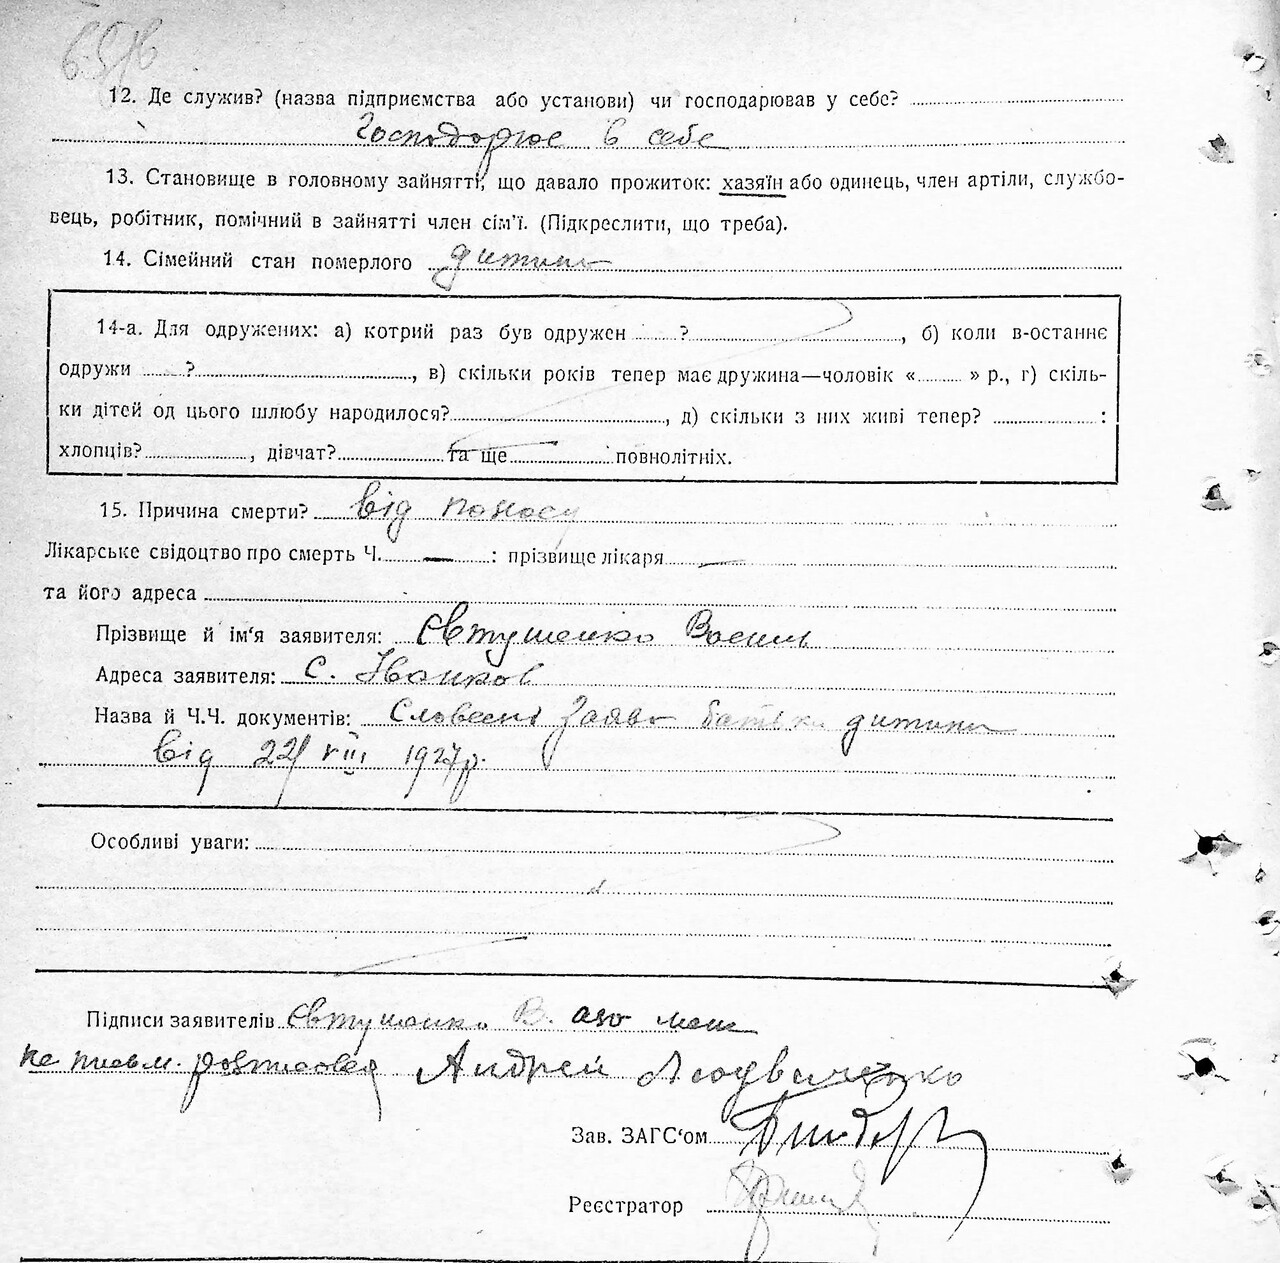 12. Де служив? (назва підприємства або установи) чи господарював у себе?
Господорює в себе
13. Становище в головному зайнятті, що давало прожиток: хазяїн або одинець, член артіли, службо-
вець, робітник, помічний в зайнятті член сім'ї. (Підкреслити, що треба).
14. Сімейний стан померлого дитина
14-а. Для одружених: а) котрий раз був одружен ?, б) коли в-останнє
одружи ?, в) скільки років тепер має дружина—чоловік « » р., г) скіль-
ки дітей од цього шлюбу народилося?, д) скільки з них живі тепер? :
хлопців?, дівчат? та ще повнолітніх.
15. Причина смерти? від поносу
Лікарське свідоцтво про смерть Ч. — : прізвище лікаря —
та його адреса
Прізвище й ім'я заявителя: Євтушенко Василь
Адреса заявителя: С. Іванков
Назва й Ч.Ч. документів: Словесна заява батька дитини
від 22/VIII 1927р.
Особливі уваги:
Підписи заявителів Євтушенко В. або
Андрей
Зав. ЗАГС'ом
Реєстратор